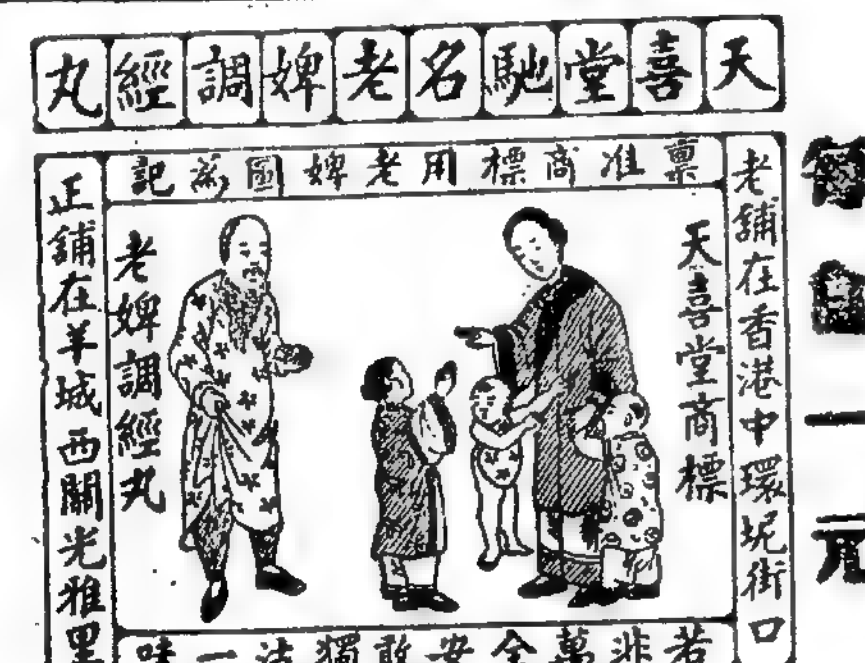 天喜堂馳名老婢調經丸
稟准商標用老婢圖為記
老舖在香港中環坭街口
天喜堂商標
老婢調經丸
正舖在羊城西關光雅里
若非萬全安敢獨沽一味
一元